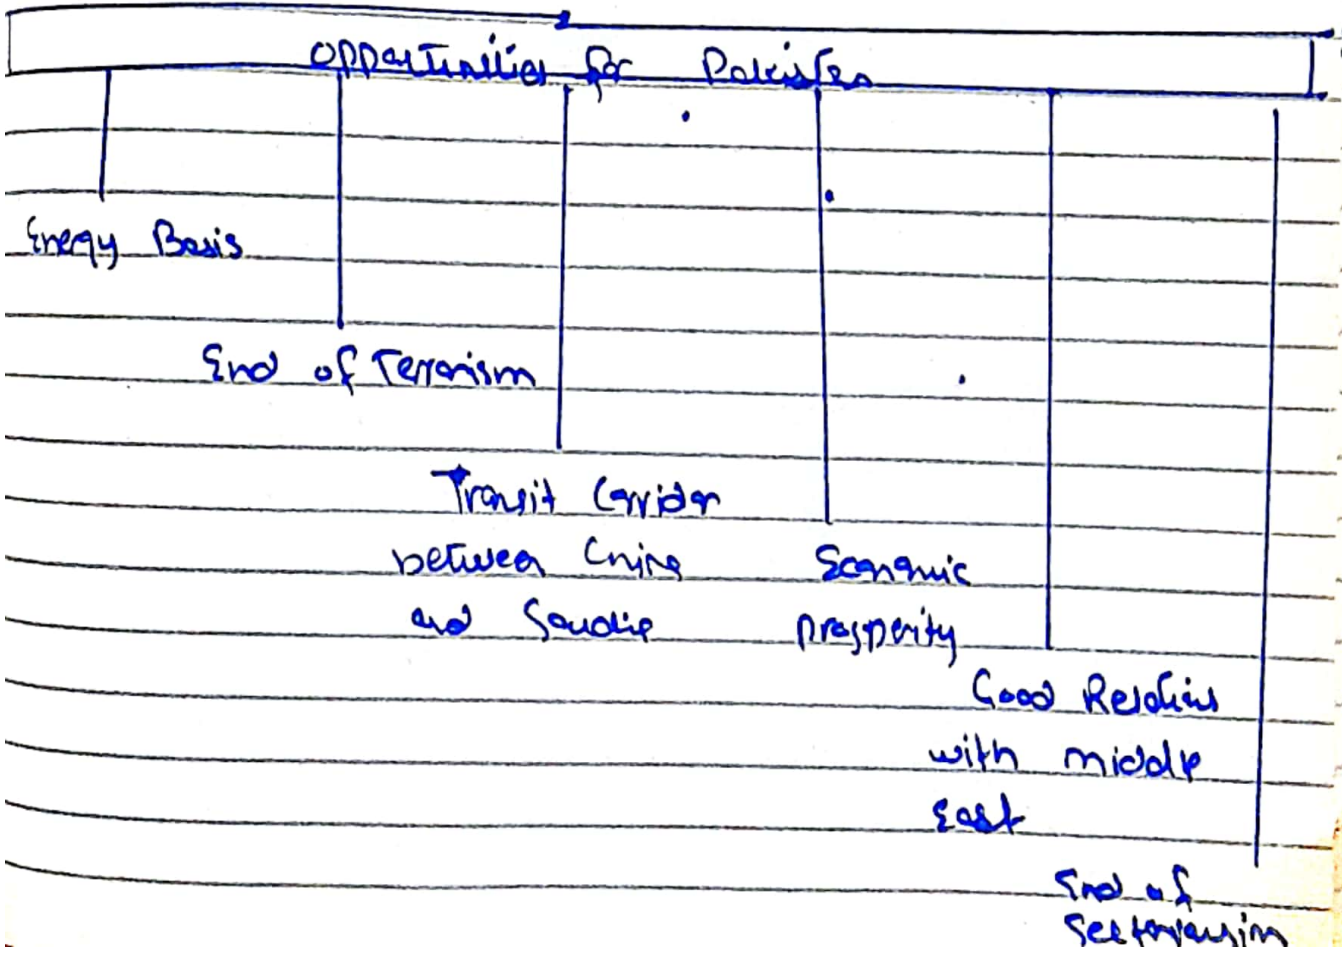 Opportunities for Pakistan
Energy Basis
End of Terrorism
Transit Corridor
between China
and Saudie
Economic
prosperity
Good Relations
with middle
East
End of
Sectarianism